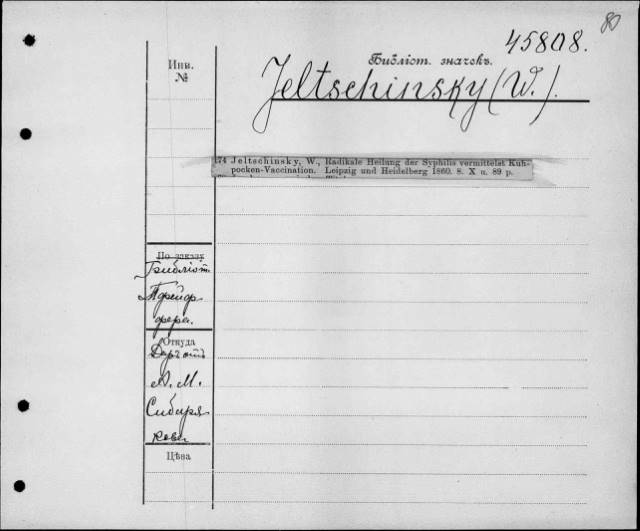 80
45808.
Библіот. значекъ.
Инв.
№
Jeltschinsky (W.).
174 Jeltschinsky, W., Radikale Heilung der Syphilis vermittelst Kuh-
pocken-Vaccination. Leipzig und Heidelberg 1860. 8. X u. 89 p.
По заказу
Библіот.
Пфейф
фера.
Откуда
Даръ отъ
А. М.
Сибиря
кова
Цѣна